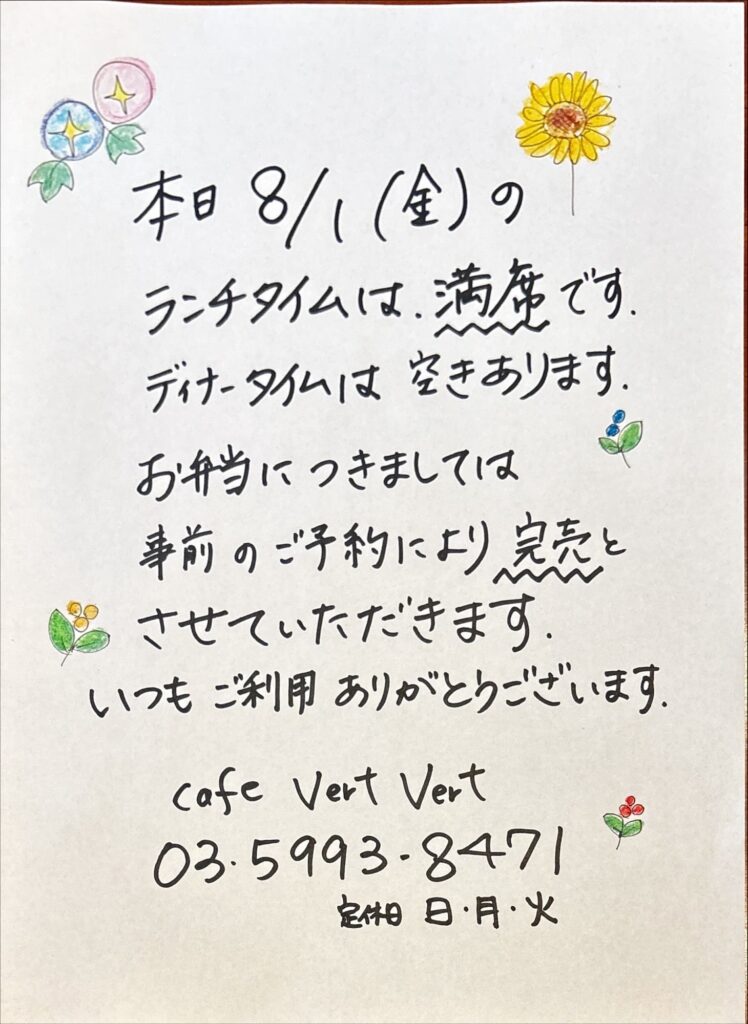 本日 8/1 (金) の
ランチタイムは、満席です.
ディナータイムは 空きあります.
お弁当に つきましては
事前の ご予約により 完売と
させていただきます.
いつも ご利用 ありがとうございます.
cafe Vert Vert
03.5993-8471
定休日 日・月・火